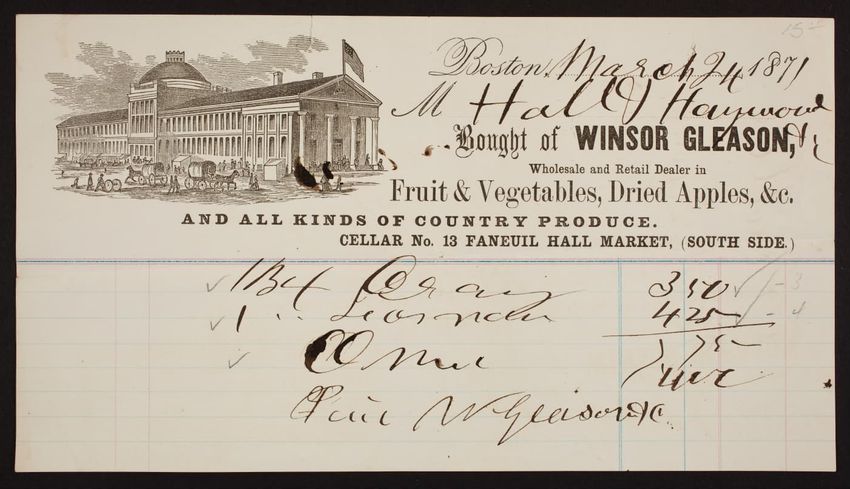 Boston, March 24 1871
M Hall & Haywood
Bought of WINSOR GLEASON, & C
Wholesale and Retail Dealer in
Fruit & Vegetables, Dried Apples, &c.
AND ALL KINDS OF COUNTRY PRODUCE.
CELLAR No. 13 FANEUIL HALL MARKET, (SOUTH SIDE.)
1 Bx 350
1 " 425
775
W Gleason & C